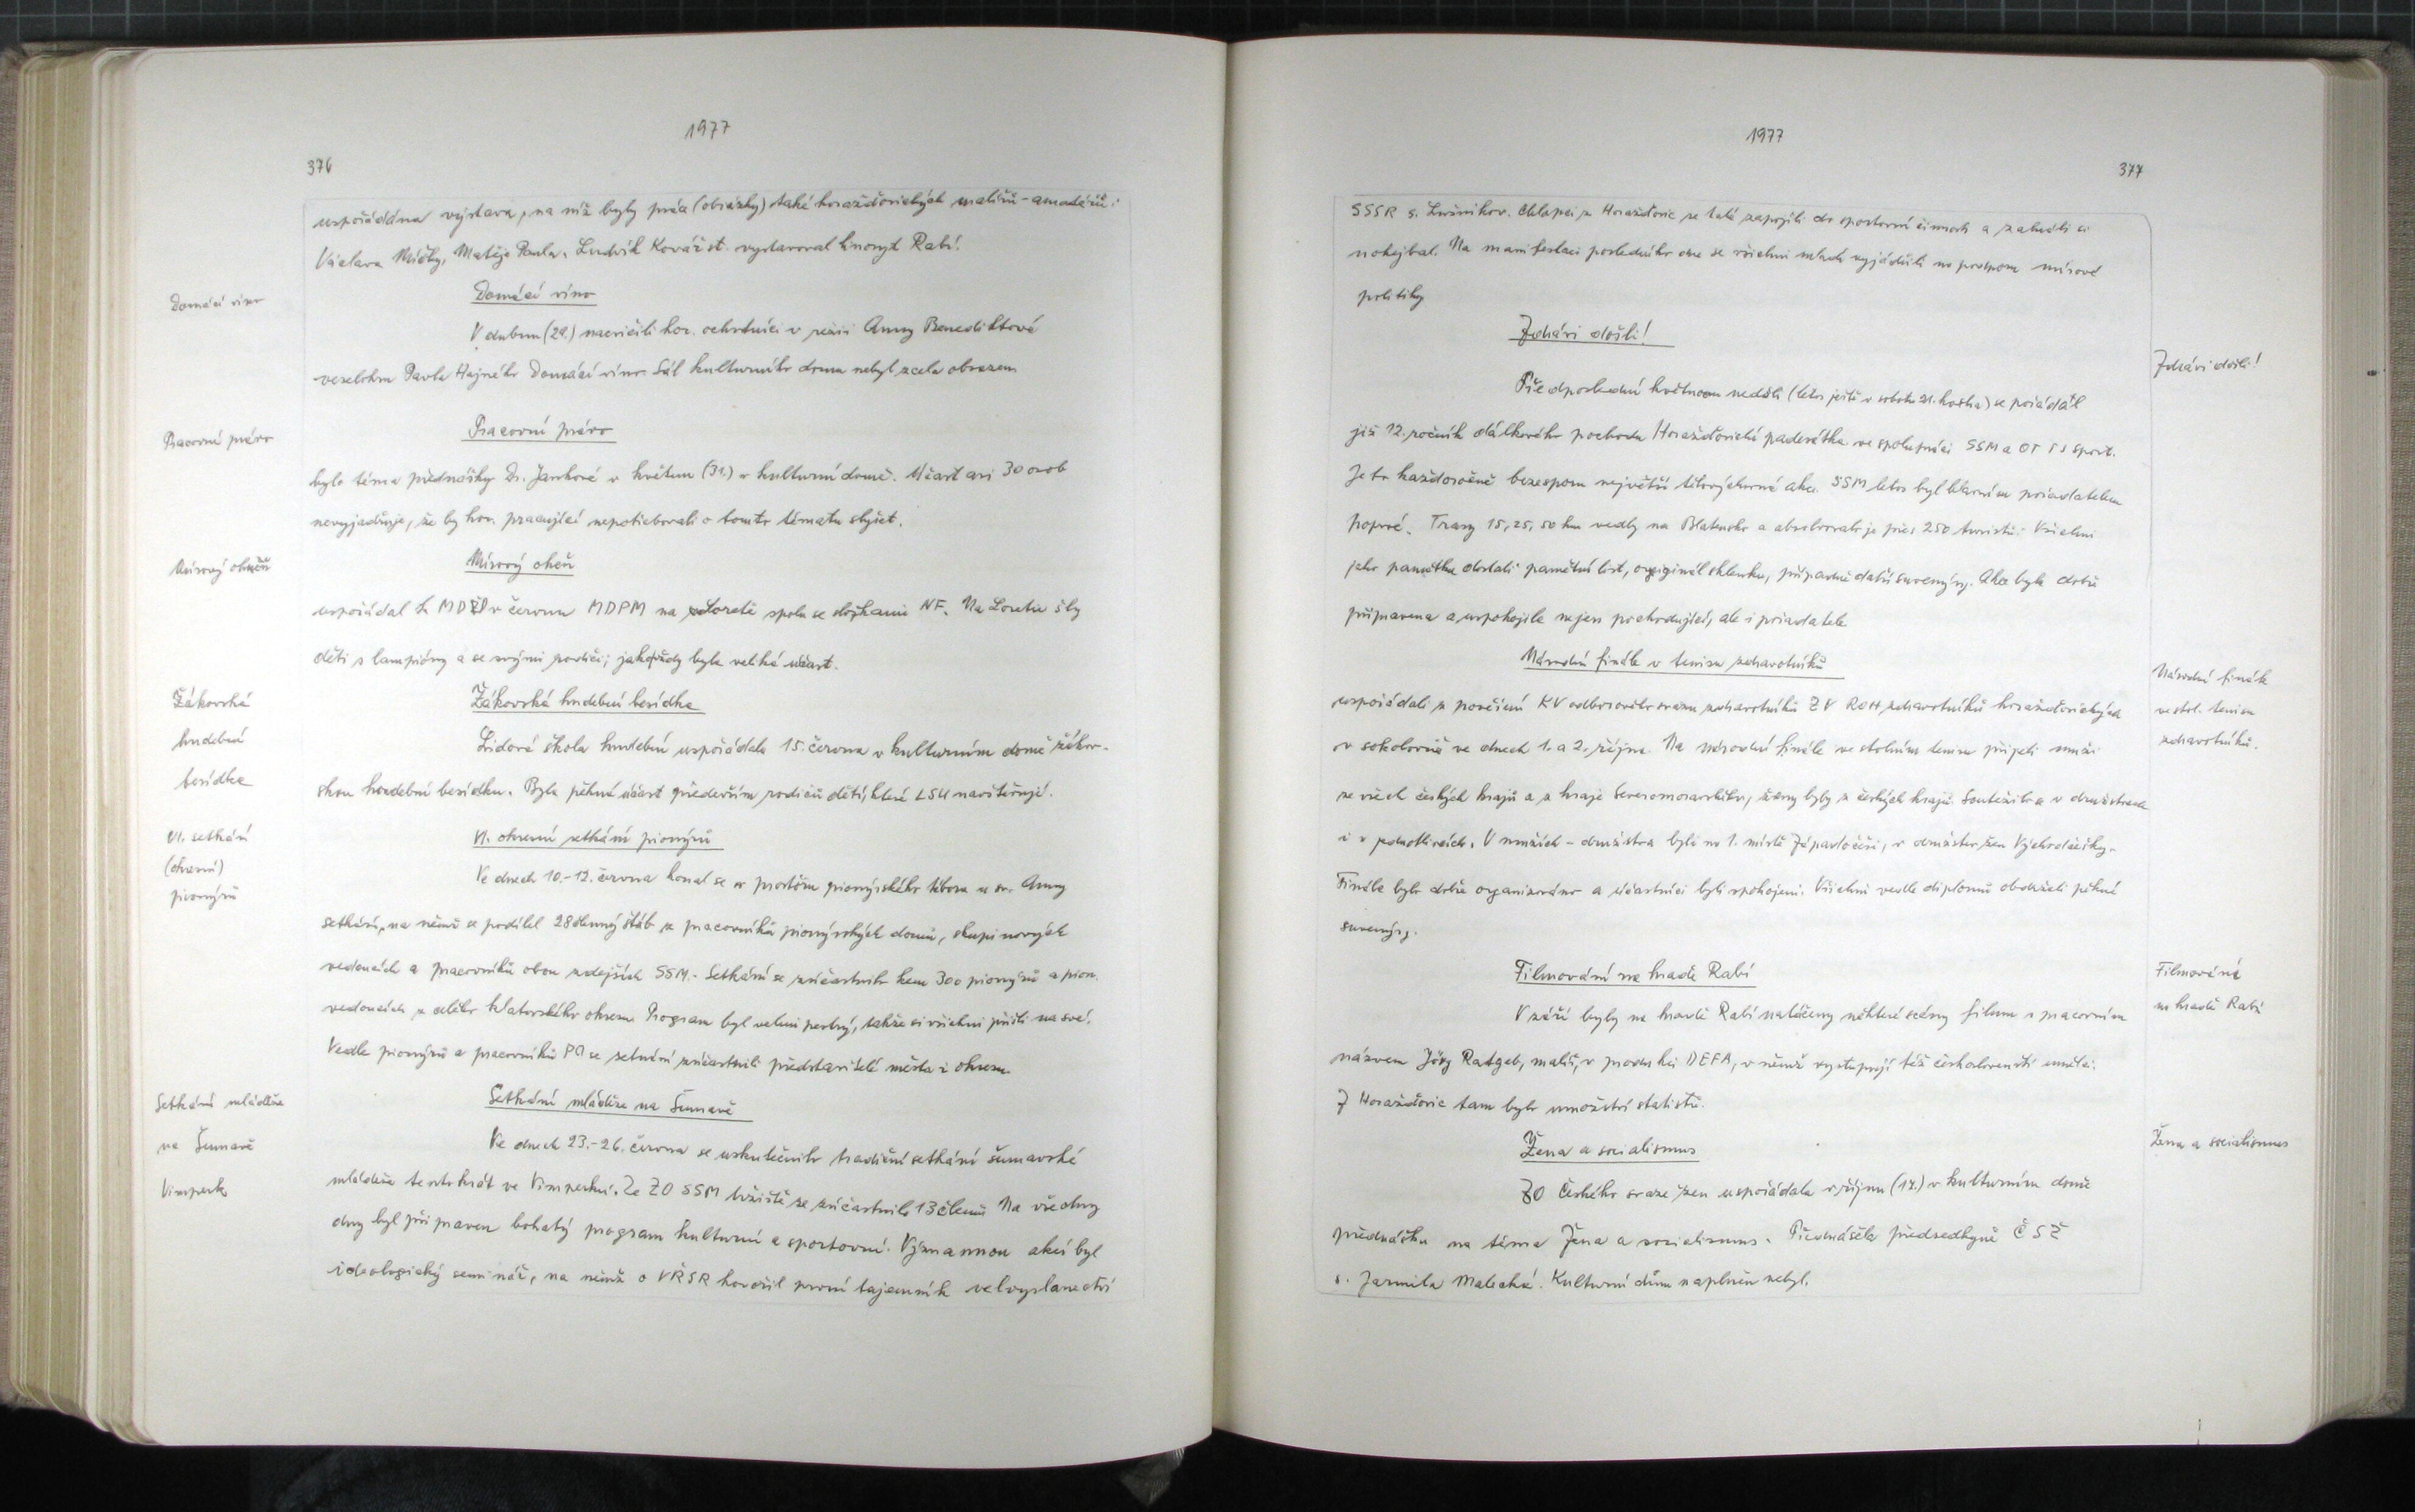 1977
376
uspořádána výstava, na níž byly práce (obrázky) také horažďovických malířů-amatérů:
Václava Mičky, Matěje Pavla. Ludvík Kovář st. vystavoval linoryt Rabí.
Domácí víno
Domácí víno
V dubnu (29.) nacvičili hor. ochotníci v režii Anny Benediktové
veselohru Pavla Hajného Domácí víno. Sál kulturního domu nebyl zcela obsazen.
Pracovní právo
Pracovní právo
bylo téma přednášky Dr. Jankové v květnu (31.) v kulturní domě. Účast asi 30 osob
nevyjadřuje, že by hor. pracující nepotřebovali o tomto tématu slyšet.
Mírový oheň
Mírový oheň
uspořádal k MDD v červnu MDPM na Loretě spolu se složkami NF. Na Loretu šly
děti s lampióny a se svými rodiči; jako vždy byla veliká účast.
Žákovská
hudební
besídka
Žákovská hudební besídka
Lidová škola hudební uspořádala 15. června v kulturním domě žákov-
skou hudební besídku. Byla pěkná účast především rodičů dětí, které LŠU navštěvují.
VI. setkání
(okresní)
pionýrů
VI. okresní setkání pionýrů
Ve dnech 10.-12. června konal se v prostoru pionýrského tábora u sv. Anny
setkání, na němž se podílel 28členný štáb z pracovníků pionýrských domů, skupinových
vedoucích a pracovníků obou zdejších SSM. Setkání se zúčastnilo kem 300 pionýrů a pion.
vedoucích z celého klatovského okresu. Program byl velmi pestrý, takže si všichni přišli na své.
Vedle pionýrů a pracovníků PO se setkání zúčastnili představitelé města i okresu.
Setkání mládeže
na Šumavě
Vimperk
Setkání mládeže na Šumavě
Ve dnech 23.-26. června se uskutečnilo tradiční setkání šumavské
mládeže tentokrát ve Vimperku. Ze ZO SSM Lužiště se zúčastnilo 13 členů. Na všechny
dny byl připraven bohatý program kulturní a sportovní. Významnou akcí byl
ideologický seminář, na němž o VŘSR hovořil první tajemník velvyslanectví
1977
377
SSSR s. Lužnikov. Chlapci z Horažďovic se také zapojili do sportovní činnosti a zahráli si
nohejbal. Na manifestaci posledního dne se všichni mladí vyjádřili na podporu mírové
politiky
Zdháři došli!
Předposlední květnovou neděli (letos ještě v sobotu 21. května) se pořádal
již 12. ročník dálkového pochodu Horažďovická padesátka ve spolupráci SSM a OT TJ sport.
Je to každoročně bezesporu největší tělovýchovná akce. SSM letos byl hlavním pořadatelem
poprvé. Trasy 15, 25, 50 km vedly na Blatensko a absolvovalo je přes 250 turistů. Všichni
jako památku dostali pamětní list, originál sklenku, případně další suvenýry. Akce byla dobře
připravena a uspokojila nejen pochodující, ale i pořadatele
Národní finále
ve stol. tenisu
zdravotníků.
Národní finále v tenisu zdravotníků
uspořádali z pověření KV odborového svazu zdravotníků ZV ROH zdravotníků horažďovických
v sokolovně ve dnech 1. a 2. října. Na národní finále ve stolním tenisu přijeli muži
ze všech českých krajů a z kraje Severomoravského, ženy byly z českých krajů. Soutěžilo se v družstvech
i v jednotlivcích. V mužích - družstva byli na 1. místě Západočeši, v družstev žen Východočešky.
Finále bylo dobře organizováno a účastníci byli spokojeni. Všichni vedle diplomů obdrželi pěkné
suvenýry.
Filmování
na hradě Rabí
Filmování na hradě Rabí
V září byly na hradě Rabí natáčeny některé scény filmu s pracovním
názvem Jörg Ratgeb, malíř, v produkci DEFA, v němž vystupují též českoslovenští umělci.
Z Horažďovic tam bylo množství statistů.
Žena a socialismus
Žena a socialismus
ZO Českého svazu žen uspořádala v říjnu (17.) v kulturním domě
přednášku na téma Žena a socialismus. Přednášela předsedkyně ČSŽ
s. Jarmila Malecká. Kulturní dům naplněn nebyl.